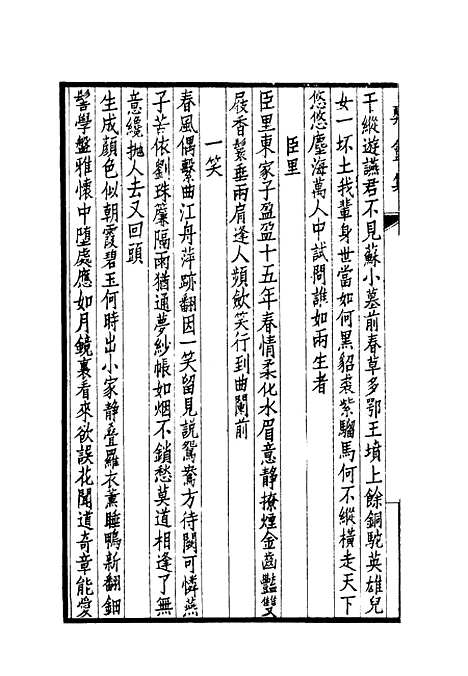 千縱遊讌君不見蘇小墓前春草多鄂王墳上餘銅駝英雄兒
女一坏土我輩身世當如何黑貂裘紫騮馬何不縱橫走天下
悠悠塵海萬人中試問誰如兩生者
臣里
臣里東家子盈盈十五年春情柔化水眉意靜撩煙金齒豔雙
屐香鬟垂兩肩逢人頻斂笑行到曲闌前
一笑
春風偶繫曲江舟萍跡翻因一笑留見說鴛鴦方待闕可憐燕
子苦依劉珠簾隔雨猶通夢紗帳如烟不鎖愁莫道相逢了無
意纔拋人去又回頭
生成顏色似朝霞碧玉何時出小家靜疊羅衣薰睡鴨新翻鈿
髻學盤雅懷中墮處應如月鏡裏看來欲誤花聞道奇章能愛